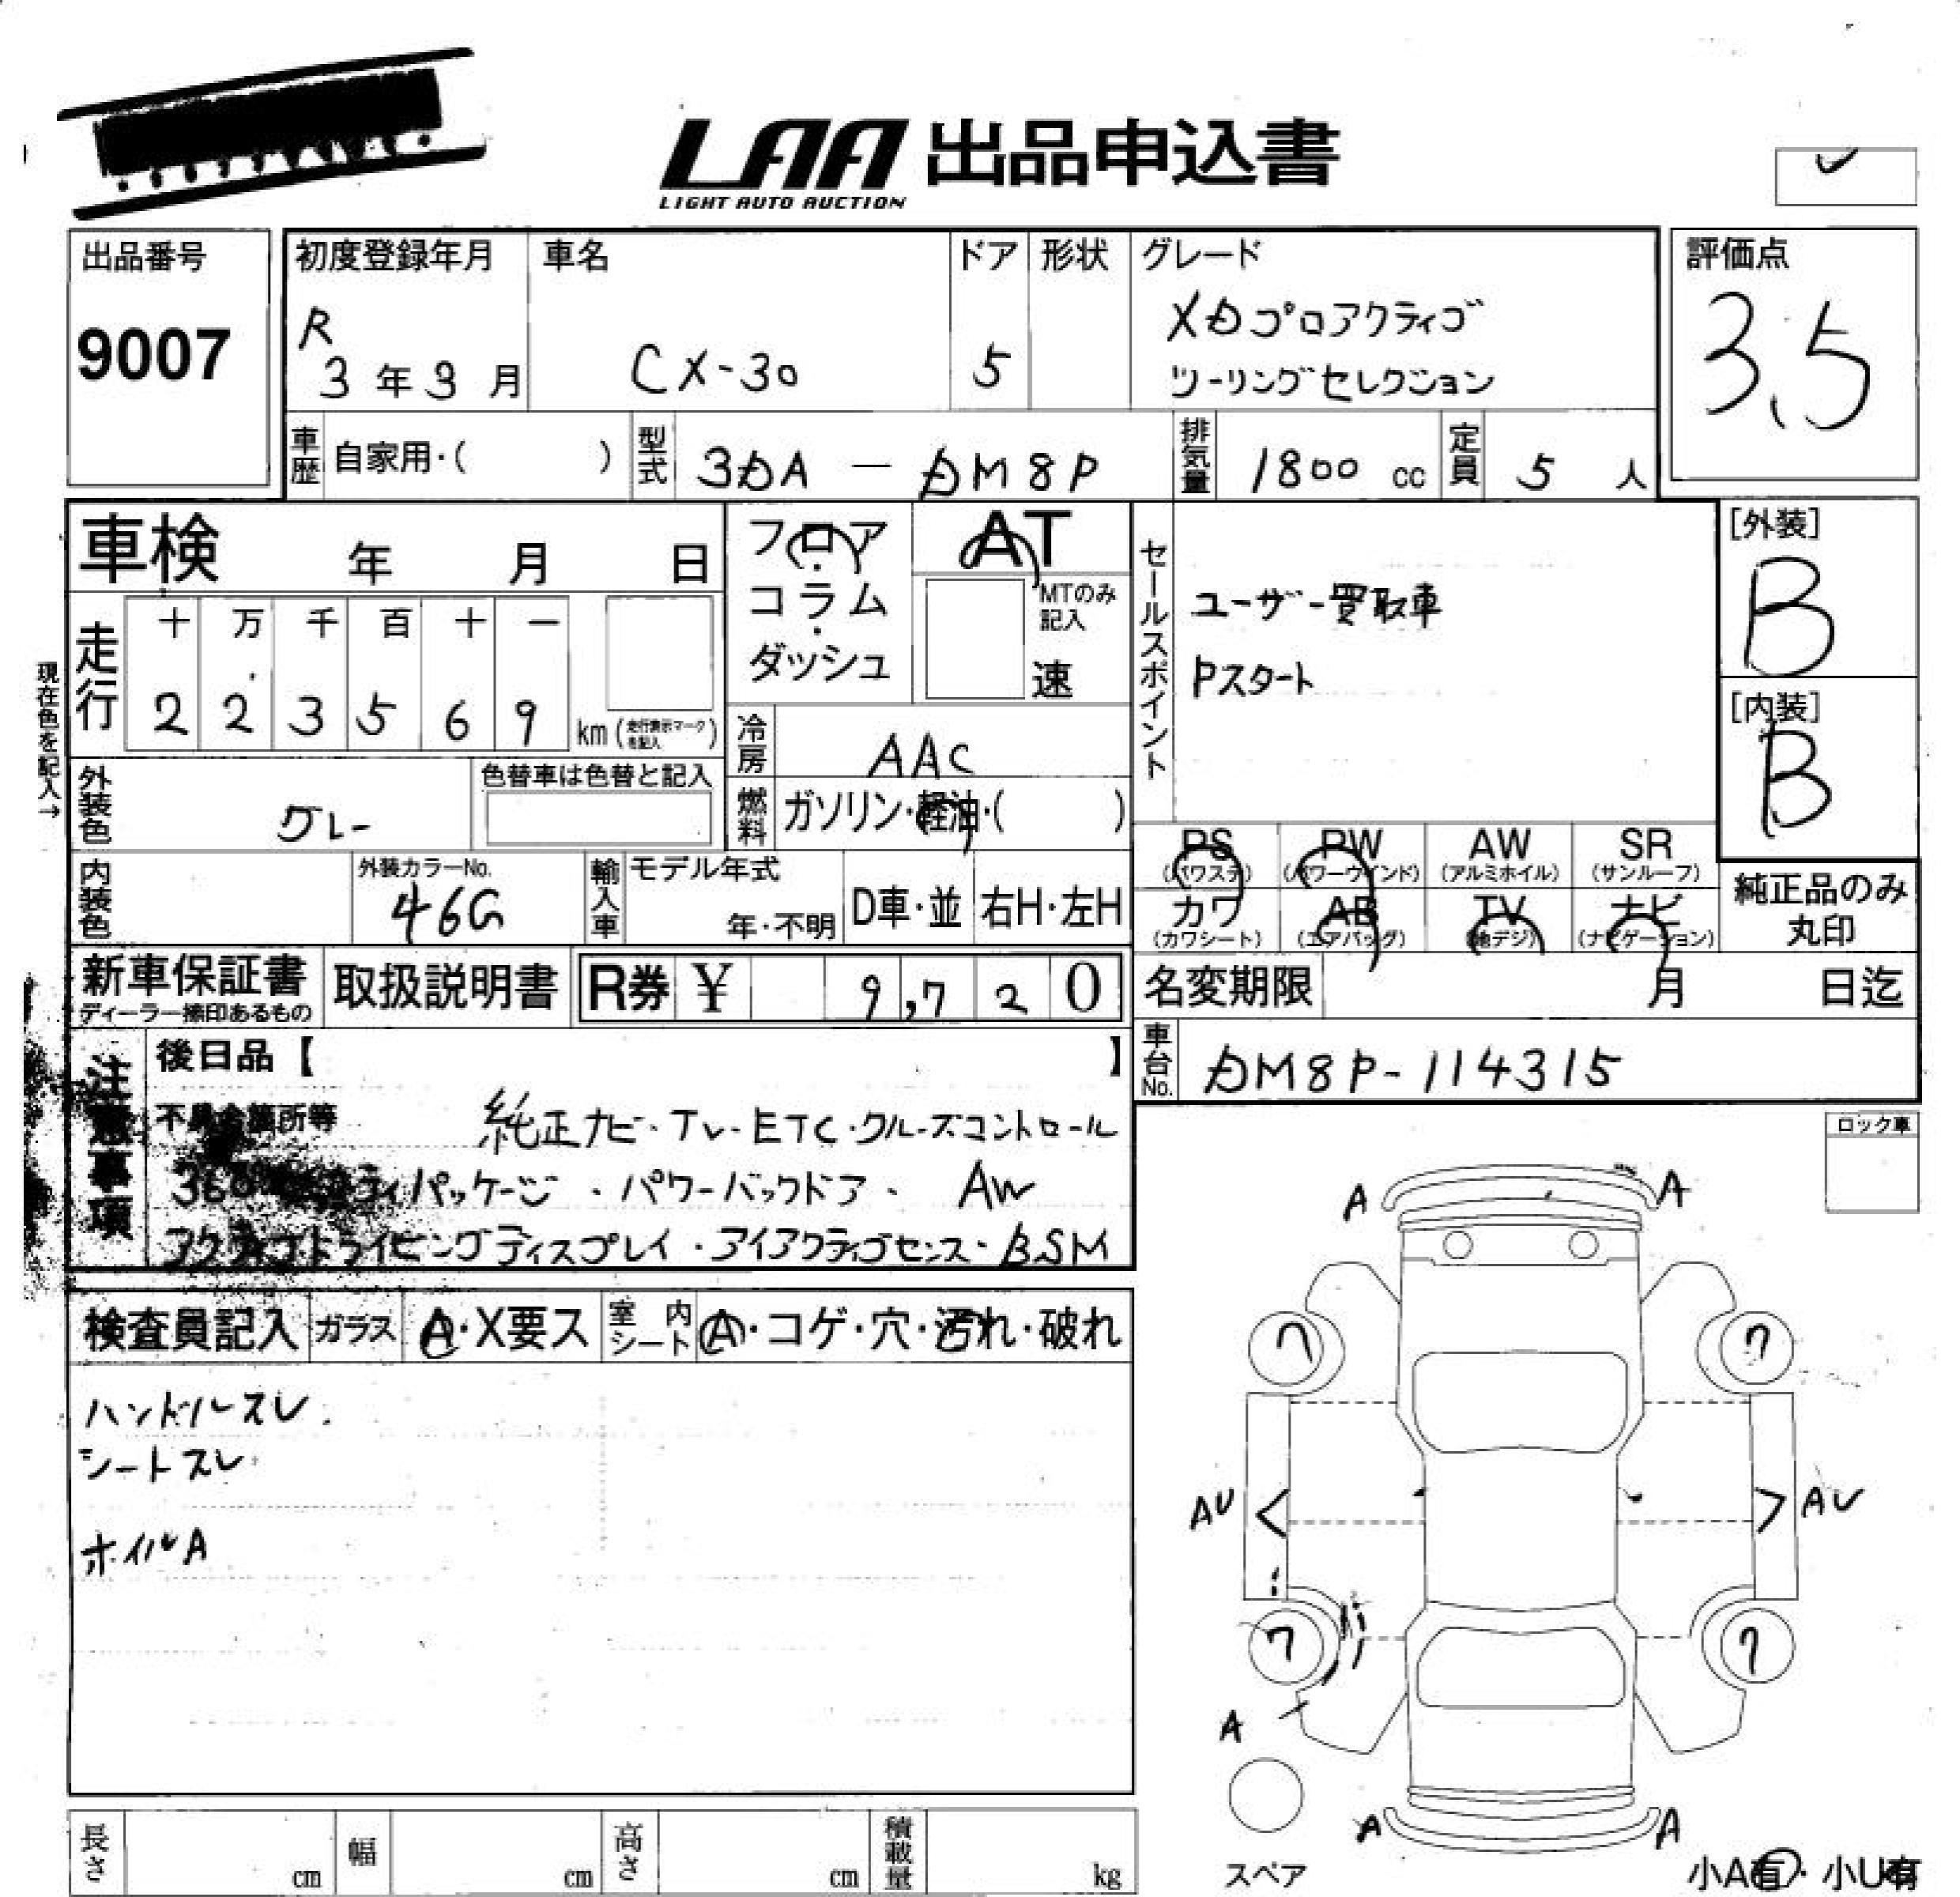 LAA 出品申込書
LIGHT AUTO AUCTION
出品番号
9007
初度登録年月
R
3年3月
車名
CX-30
ドア
5
形状
グレード
XDプロアクティブ
ツーリングセレクション
評価点
3.5
車歴 自家用・( )
型式 3DA — DM8P
排気量 1800 cc
定員 5 人
車検 年 月 日
フロア・コラム・ダッシュ
AT
MTのみ記入
速
セールスポイント
ユーザー買取車
Pスタート
[外装]
B
[内装]
B
現在色を記入→
走行
十 万 千 百 十 一
2 2 3 5 6 9 km (走行表示マークを記入)
冷房 AAC
外装色 グレー
色替車は色替と記入
燃料 ガソリン・軽油・( )
PS (パワステ)
PW (パワーウインド)
AW (アルミホイル)
SR (サンルーフ)
カワ (カワシート)
AB (エアバッグ)
TV (地デジ)
ナビ (ナビゲーション)
純正品のみ丸印
内装色
外装カラーNo.
46G
輸入車 モデル年式
年・不明
D車・並
右H・左H
新車保証書
ディーラー捺印あるもの
取扱説明書
R券 ¥ 9,720
名変期限 月 日迄
車台No. DM8P-114315
注意事項
後日品【 】
不具合箇所等
純正ナビ・TV・ETC・クルーズコントロール
360°セーフティパッケージ・パワーバックドア・AW
アクティブドライビングディスプレイ・アイアクティブセンス・BSM
ロック車
検査員記入
ガラス A・X要ス
室内シート A・コゲ・穴・汚れ・破れ
ハンドルスレ
シートスレ
ホイルA
A A
7 7
AU AU
7 7
A
A A
スペア
小A有・小U有
長さ cm
幅 cm
高さ cm
積載量 kg